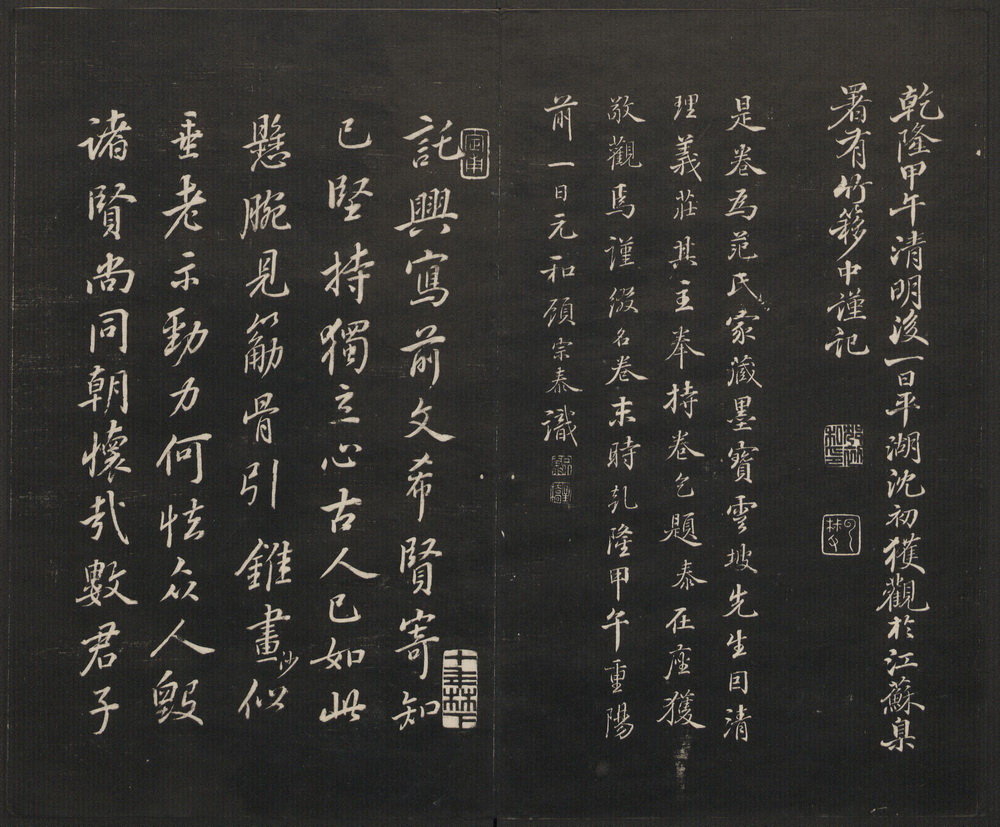 乾隆甲午清明後一日平湖沈初獲觀於江蘇臬
署有竹簃中謹記
是卷為范氏家藏墨寶雲坡先生因清
理義莊其主奉持卷乞題泰在座獲
敬觀焉謹綴名卷末時乾隆甲午重陽
前一日元和顧宗泰識
託興寫前文希賢寄知
己堅持獨立心古人已如此
懸腕見筋骨引錐畫沙似
垂老示勁力何怯众人毀
諸賢尚同朝懷哉數君子